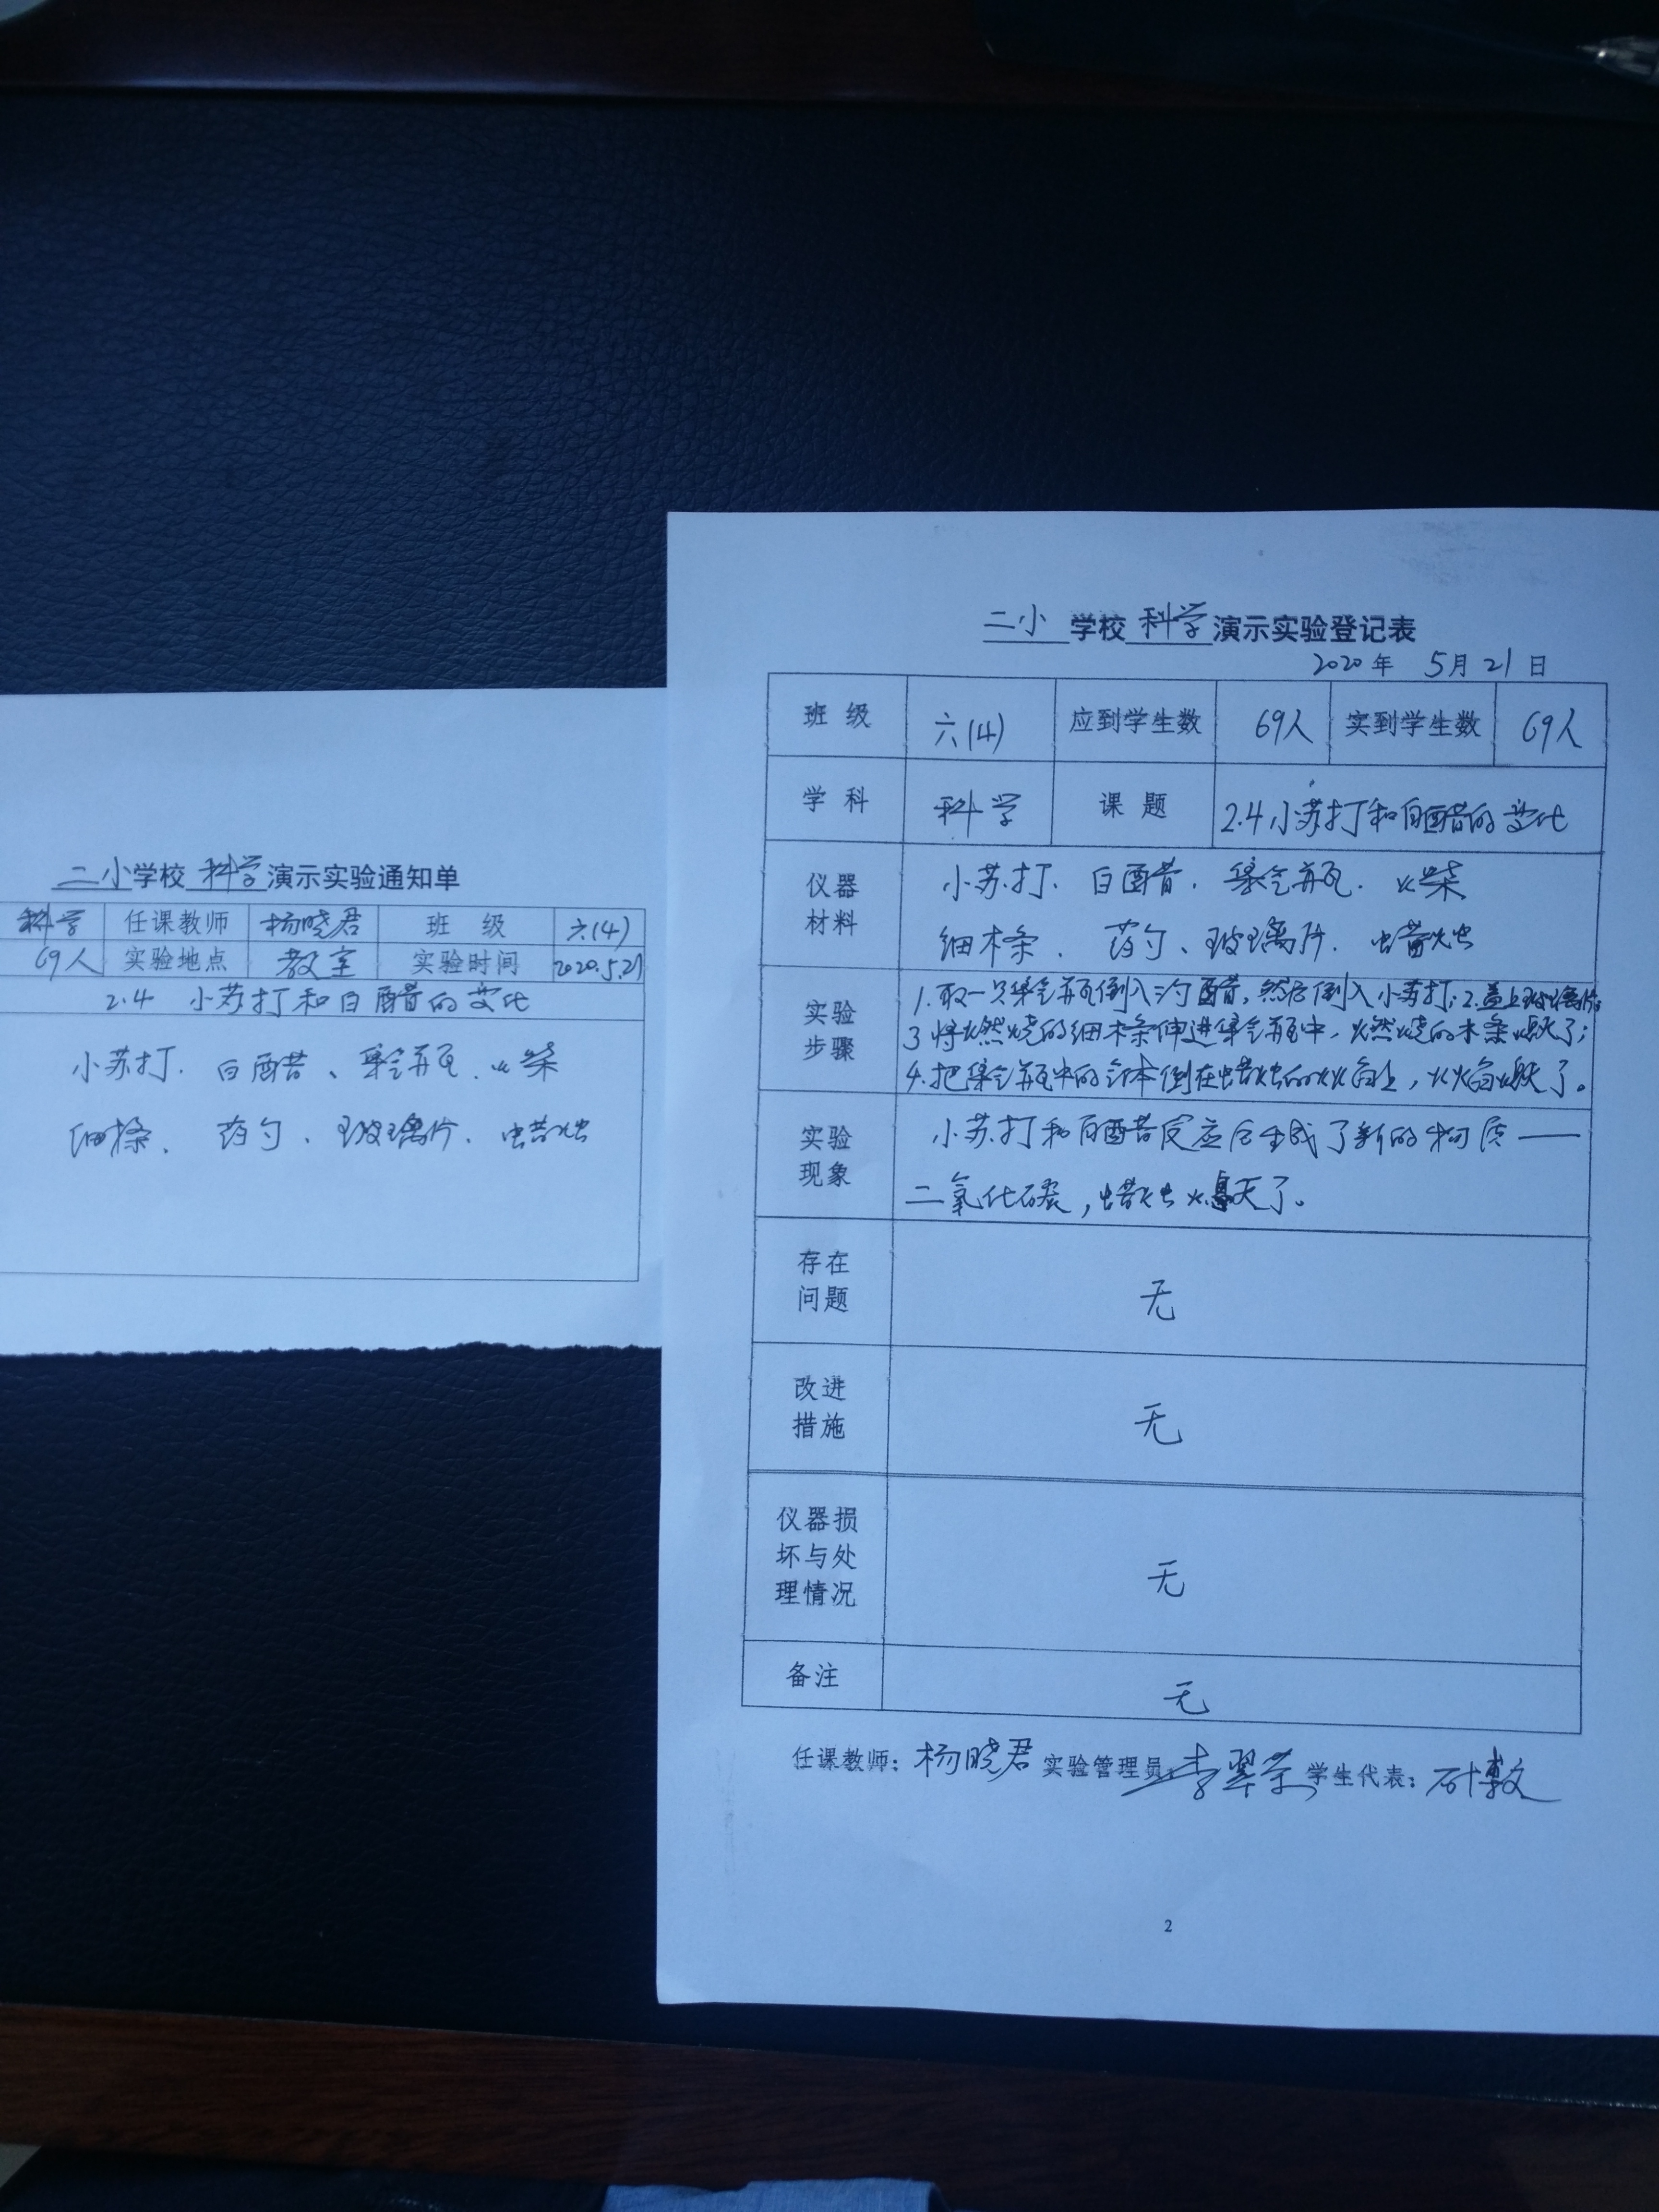 二小学校科学演示实验通知单
科学 任课教师 杨晓君 班 级 六(4)
69人 实验地点 教室 实验时间 2020.5.21
2.4 小苏打和白醋的变化
小苏打、白醋、集气瓶、火柴
细条、药勺、玻璃片、蜡烛
二小 学校 科学 演示实验登记表
2020年 5月21日
班 级 六(4) 应到学生数 69人 实到学生数 69人
学 科 科学 课 题 2.4小苏打和白醋的变化
仪器 小苏打、白醋、集气瓶、火柴
材料 细木条、药勺、玻璃片、蜡烛
实验
步骤
1.取一只集气瓶倒入醋,然后倒入小苏打;2.盖上玻璃片;
3.将燃烧的细木条伸进集气瓶中,燃烧的木条熄灭了;
4.把集气瓶中的气体倒在蜡烛的火焰上,火焰熄灭了。
实验 小苏打和白醋反应后生成了新的物质——
现象 二氧化碳,蜡烛熄灭了。
存在
问题
无
改进
措施
无
仪器损
坏与处
理情况
无
备注 无
任课教师:杨晓君 实验管理员:李翠 学生代表:
2